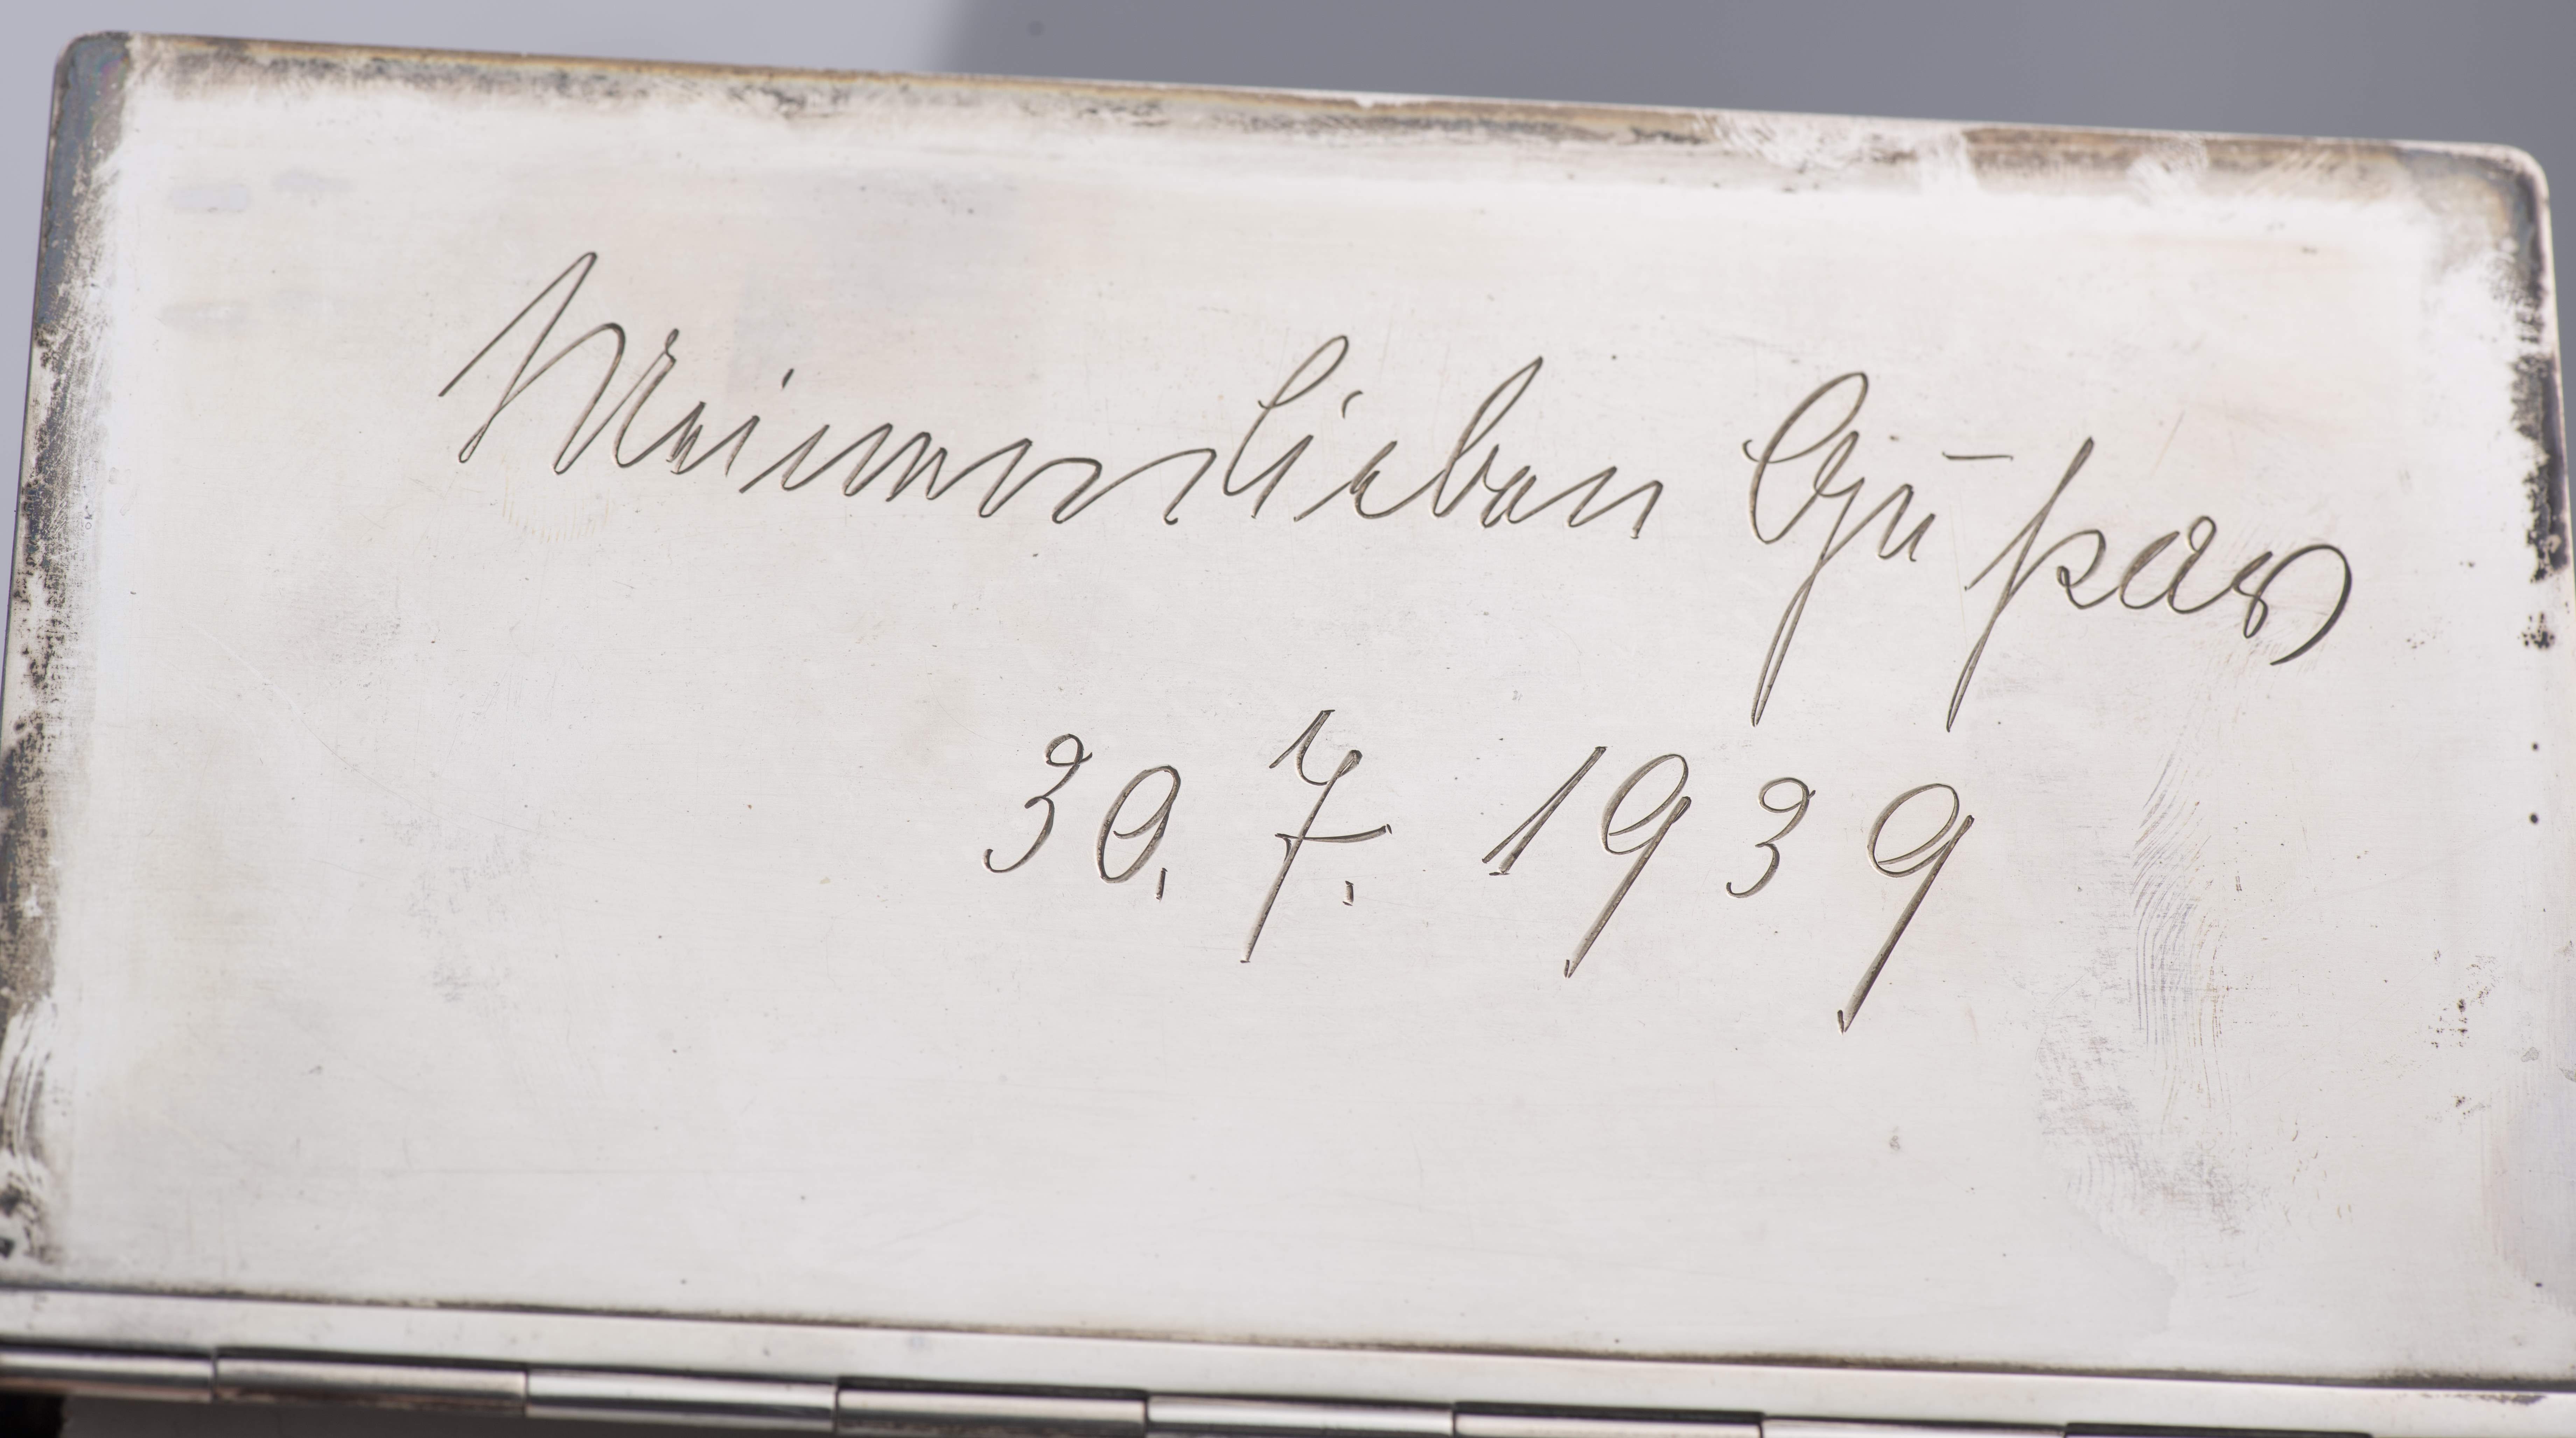 Meinem lieben Gustav
30. 7. 1939